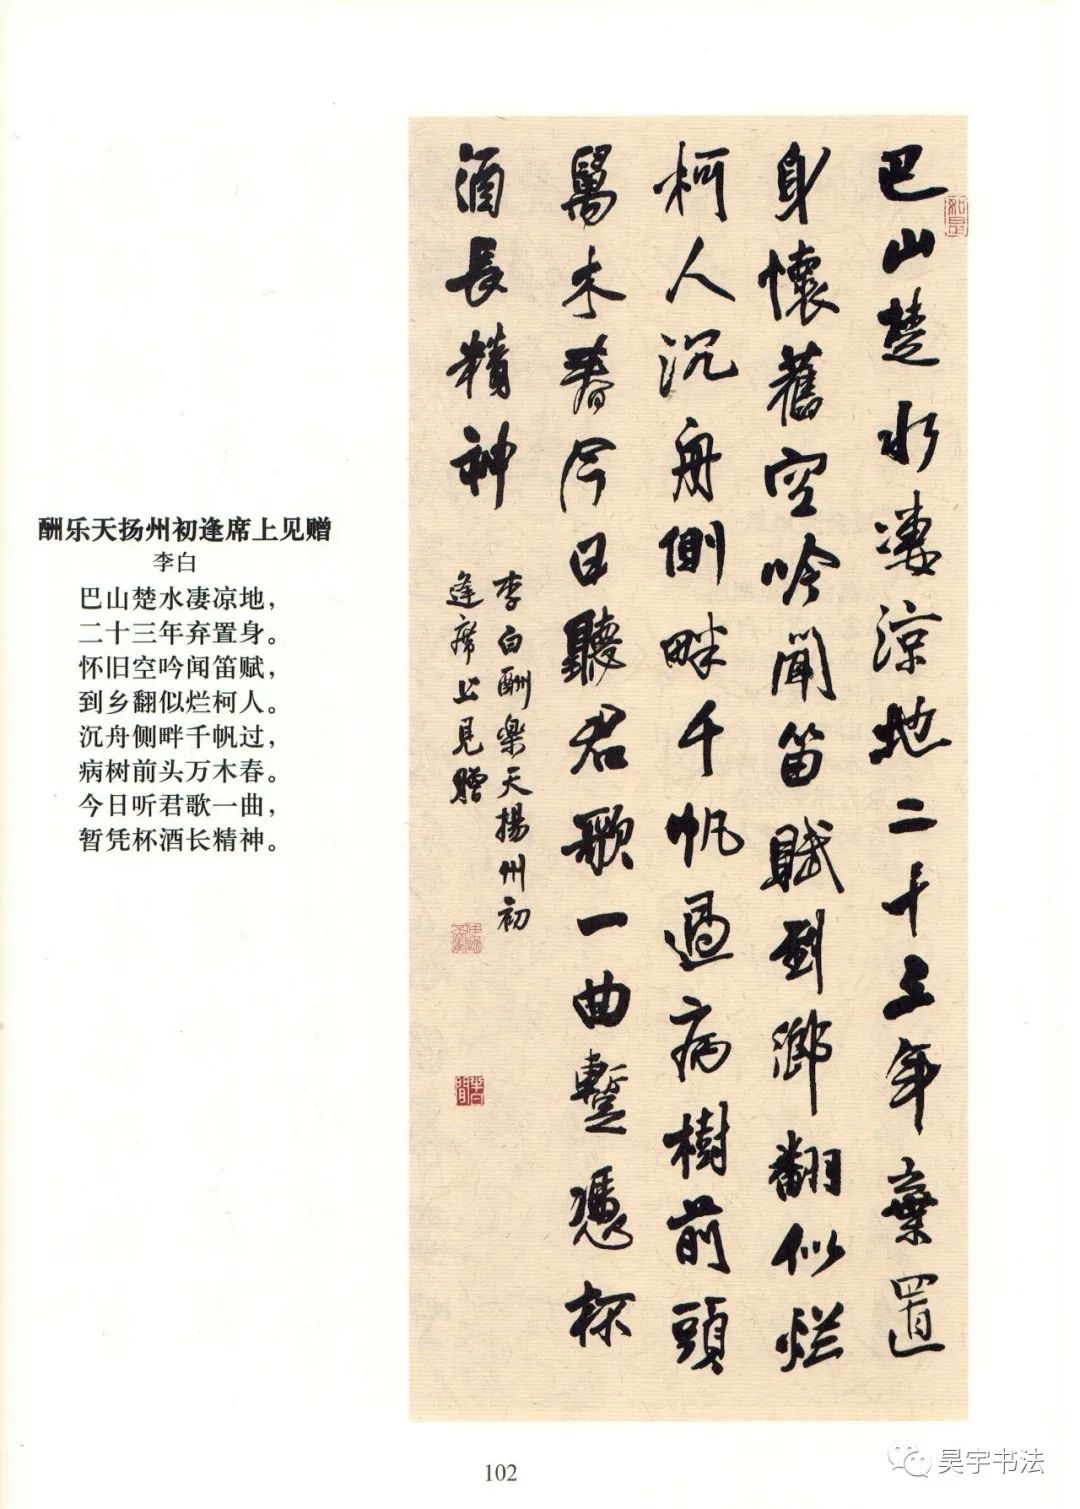 酬乐天扬州初逢席上见赠
李白
巴山楚水凄凉地，
二十三年弃置身。
怀旧空吟闻笛赋，
到乡翻似烂柯人。
沉舟侧畔千帆过，
病树前头万木春。
今日听君歌一曲，
暂凭杯酒长精神。
巴山楚水凄涼地二十三年棄置
身懷舊空吟聞笛賦到鄉翻似烂
柯人沉舟側畔千帆過病樹前頭
萬木春今日聽君歌一曲暫憑杯
酒長精神
李白酬樂天揚州初
逢席上見贈
102
昊宇书法